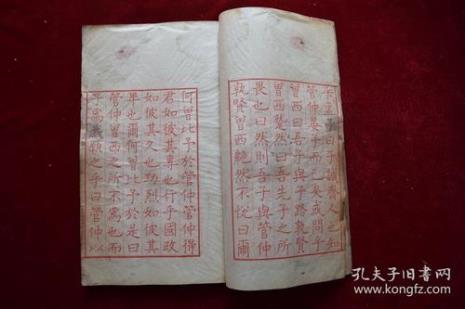 子誠齊人也知
管仲晏子而已矣或問乎
曾西曰吾子與子路孰賢
曾西蹵然曰吾先子之所
畏也曰然則吾子與管仲
孰賢曾西艴然不悅曰爾
何曾比予於管仲管仲得
君如彼其專也行乎國政
如彼其久也功烈如彼其
卑也爾何曾比予於是曰
管仲曾西之所不爲也而
子爲我願之乎曰管仲以
孔夫子旧书网
www.kongfz.com